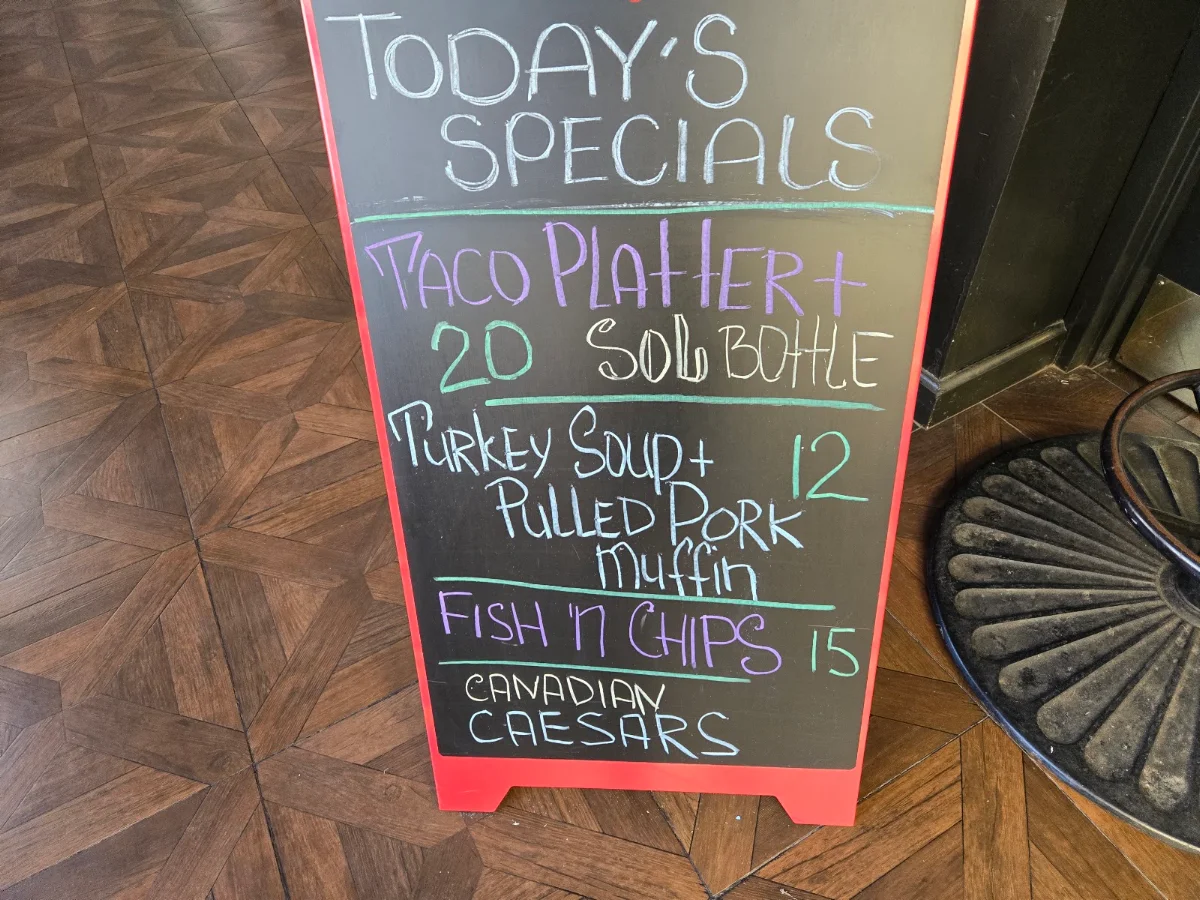 TODAY'S
SPECIALS
TACO PLATTER +
20 SOL BOTTLE
TURKEY SOUP + 12
PULLED PORK
muffin
FISH 'N CHIPS 15
CANADIAN
CAESARS